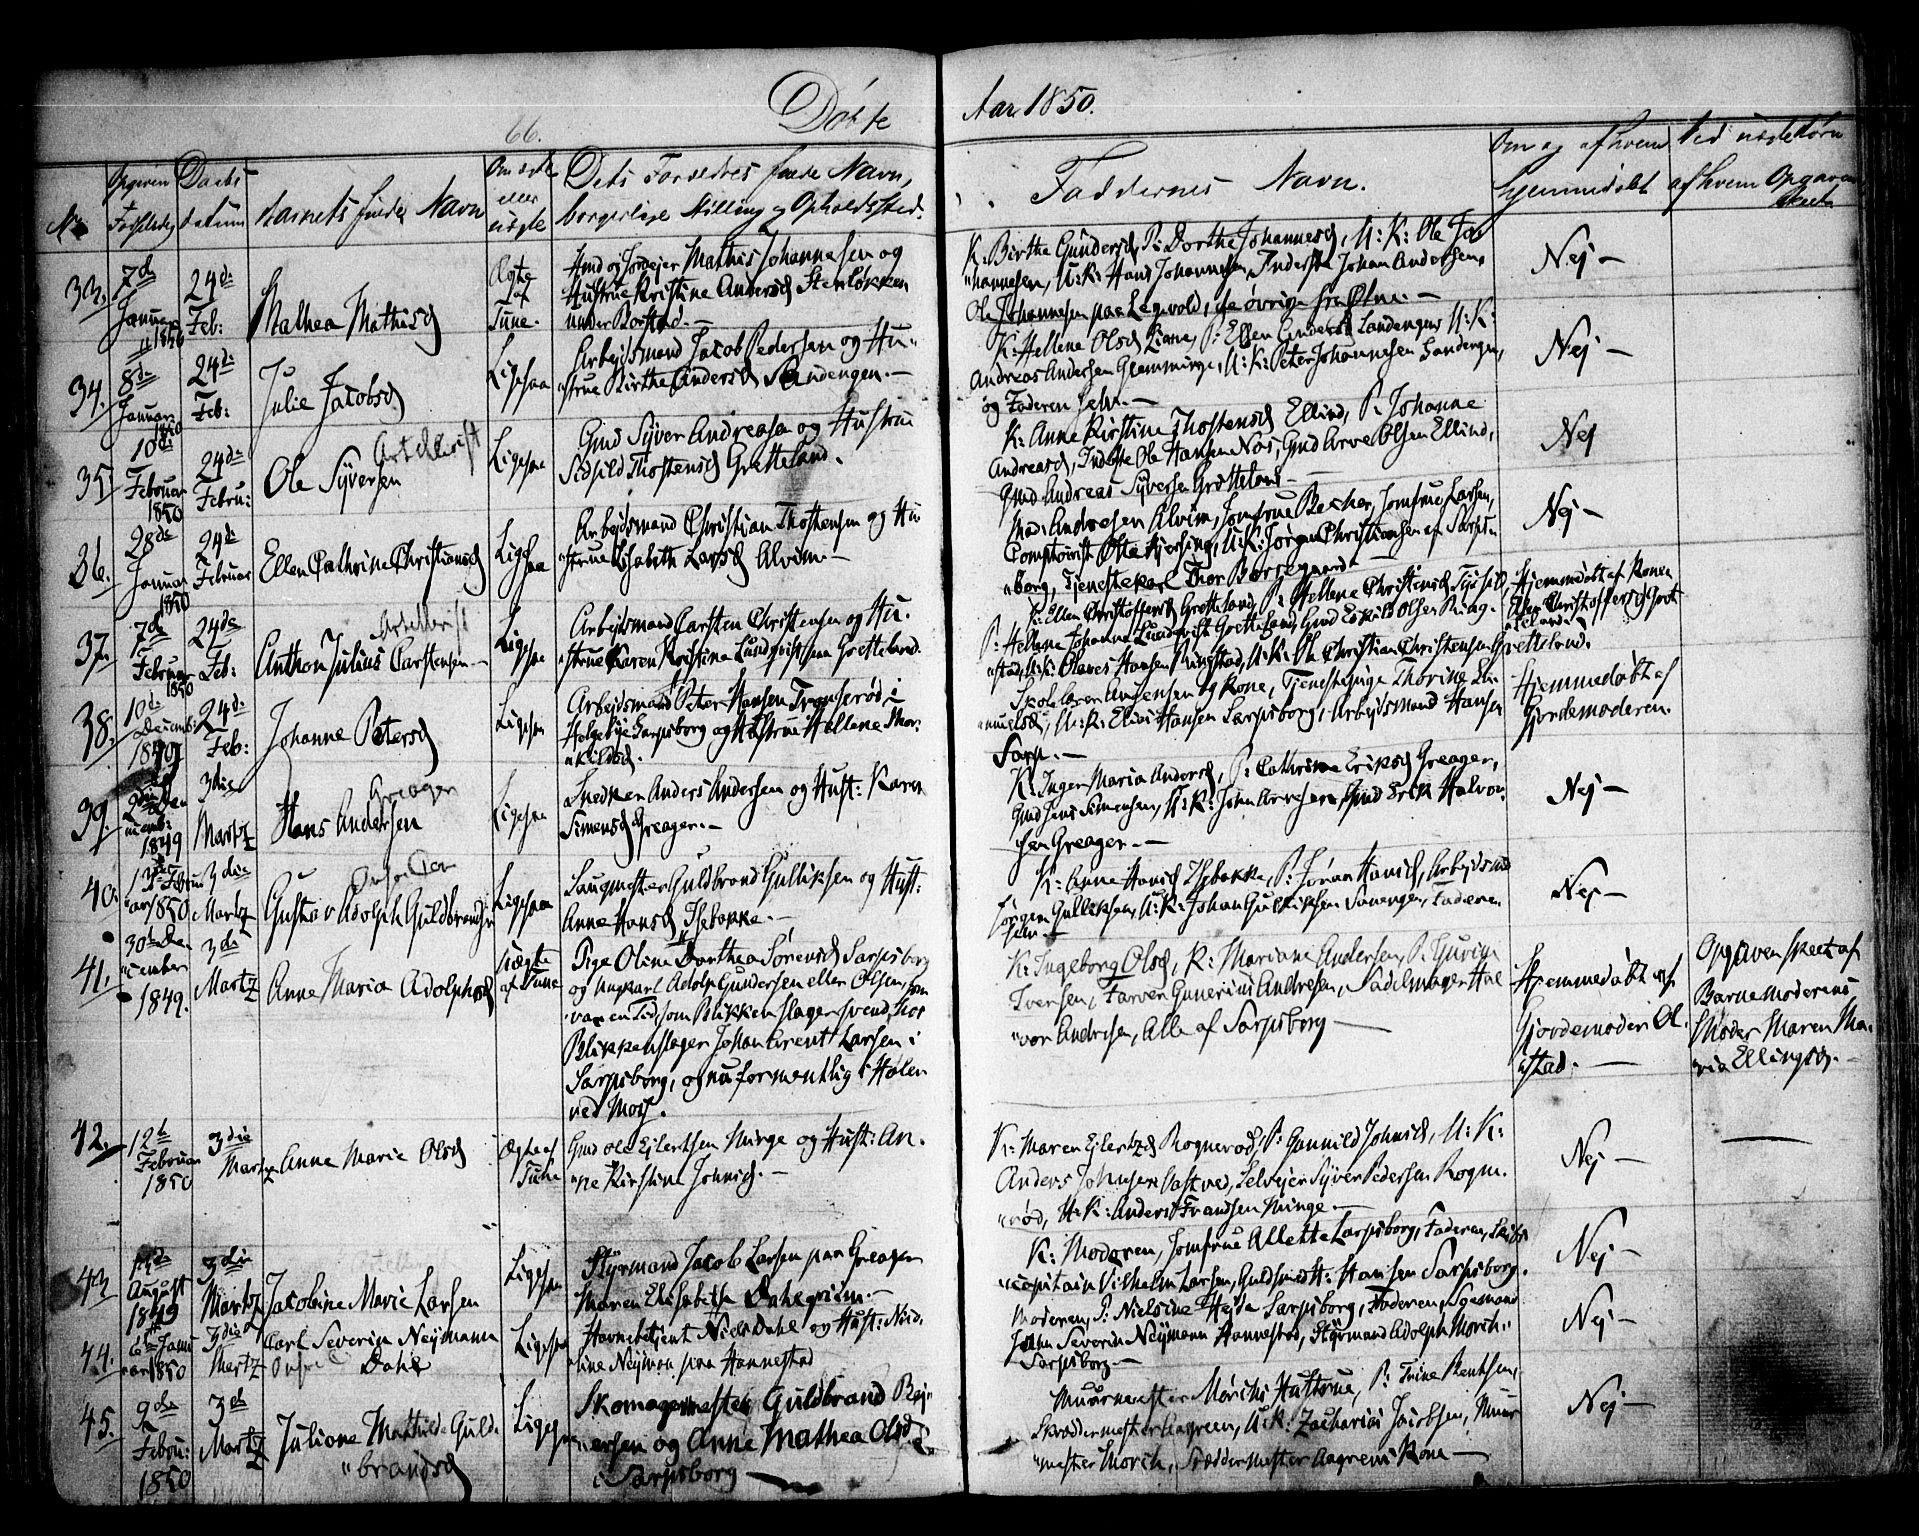 66.
Døbte
Aar 1850.
No
Opgiven Fødselsdag
Daabs datum
Barnets fulde Navn
Om ægte eller uægte
Dets Forældres fulde Navn,
borgerlige Stilling og Opholdssted.
Faddernes Navn.
Om og af hvem
hjemmedøbt
Ved uægte Børn
af hvem Opgaven skeet
33.
7de Januar 1850
24de Feb:
Mathea Mathisd
Ægte af Tune.
Gmd og Jordejer Mathis Johannesen og
Hustrue Kristine Andersd Stenløkken
under Borstad.—
K: Birthe Gundersd, P: Dorthe Johannesd, U: K: Ole Jo
"hannesen, U:K: Hans Johannesen, Johan Andersen,
Ole Johannesen paa Legevold, de øvrige fra
Nej —
34.
8de Januar 1850
24de Feb:
Julie Jacobsd
Ligesaa
Arbejdsmand Jacob Pedersen og Hu"
"strue Birthe Andersd Sandengen.—
K: Hellene Olsd P: Ellen Andersd Sandengens U: K:
Andreas Andersen Glemminge, U: K: Peter Johannesen Sandengen,
og Faderen selv.—
Nej —
35
10de Februar 1850
24de Febru:
Ole Syversen
Ligesaa
Gmd Syver Andreasen og Hustrue
Thostensd Grotteland.
K: Anne Kirstine Thostensd Ellind, P: Johanne
Andreasd, Ole Hansen Næs, Gmd Arve Olsen Ellind,
Gmd Andreas Syversen Grotteland—
Nej
36.
28de Januar 1850
24de Februar
Ellen Cathrine Christiansd
Ligesaa
Arbejdsmand Christian Thostensen og Hu
"strue Elisabeth Larsd Alvim.—
Mad: Andresen Alvim, Jomfrue Becker, Jomfrue Larsen,
Comptoirist U:K: Jørgen Christiansen af Sarps"
"borg, Tjenestekarl Thor Borregaard.
Nej —
37.
7de Februar 1850
24de Feb:
Anthon Julius Carstensen—
Ligesaa
Arbejdsmand Carsten Christensen og Hu.
"strue Karen Kristine Lundqvist paa Grotteland.
K: Ellen Christoffersd Grotteland, P: Hellene Christensd
P: Hellene Johanne Lundqvist Grotteland, Gmd Eskild Olsen Ring"
"stad, U:K: Olaves Hansen Ringstad, U:K: Ole Christian Christensen Grotteland.
Hjemmedøbt af Konen
Ellen Christoffersd Grot
"teland.
38.
10de Decemb: 1849
24de Feb:
Johanne Petersd
Ligesaa
Arbejdsmand Peter Hansen i
Helgebye Sarpsborg og Hustrue Hellene Thor"
"kildsd.
Skolelærer og Kone, Tjenestepige Thorine Em"
"nuelsd, U:K: Elias Hansen Sarpsborg, Arbejdsmand Hansen
Sarp.—
Hjemmedøbt af
Gjordemoderen.
39.
3die Martz
1849
Hans Andersen
Greager
Ligesaa
Snedker Anders Andersen og Hust: Karen
Simensd Greager.—
K: Inger Maria Andersd, P: Cathrine Eriksd Greager,
Gmd Jens Simensen, U:K: John Arvesen, Gmd Erik Halvor"
sen Greager.—
Nej —
40.
1850
3die Martz
Gustav Adolph Guldbrandsen
Ligesaa
Saugmester Guldbrand Gulliksen og Hust:
Anne Hansd
K: Anne Hansd P: Jøran Hansd, Arbejdsmd
Jørgen Gulliksen, U:K: Johan Gulliksen Faderen
selv.—
Nej —
41.
30te De"
"cember
1849.
3die Martz
Anne Maria Adolphsd
Uægte
af Tune
Pige Oline Dorthea Sørensd Sarpsborg
og Ungkarl Adolph Gundersen eller Olsen, som
var en Tid, som Blikkenslagersvend, hos
Blikkenslager Johan Brent Larsen i
Sarpsborg, og nu formentlig i Halen
ved Moss.
K: Ingeborg Olsd, K: Mariane Andersen, P: Guvine
Iversen, Farver Gunerius Andresen, Sadelmager Hal
"vor Andresen, Alle af Sarpsborg —
Hjemmedøbt af
Gjordemoder Ol.
"stad.—
Opgaven skeet af
Barnemoderens
Moder Maren Ma"
"ria Ellingsd.—
42.
12te Februar 1850
3die Martz
Anne Marie Olsd
Ægte af Tune
Gmd Ole Ejlertsen Minge og Hust: An"
"ne Kirstine Johnsd.—
K: Maren Ejlertsd Rognerød, P: Gunnild Johnsd, U: K:
Anders Johnsen Selvejer Syver Pedersen Rogne"
"rød, U:K: Anders Frandsen Minge.—
Nej —
43
August 1849
3die Martz
Jacobine Marie Larsen
Ligesaa
Styrmand Jacob Larsen paa Greager
Maren Elisabeth Dahlgriim.—
K: Moderen, Jomfrue Allette Sarpsborg, Faderen, Skibs
"capitain Vilhelm Larsen, Guldsmed H: Hansen Sarpsborg.
Nej —
44.
6te Janu"
"ar 1850
3die Martz
Carl Severin Neÿmann
Dahl
Ligesaa
Havnebetjent Niels Dahl og Hust: Nico"
"line Neÿman paa Hannestad
Moderen, P: Nielsine Hejde Sarpsborg, Faderen,
John Severin Neÿmann Hannestad, Styrmand Adolph Morch"
Sarpsborg.—
Nej —
45.
9de Febru: 1850
3die Martz
Juliane Mathilde Guld"
"brandsd
Ligesaa
Skomagermester Guldbrand Rej"
"ersen og Anne Mathea Olsd
i Sarpsborg —
Muurmester Morchs Hustrue, P: Trine Bentsen,
Skræddermester Aagreen, U:K: Zacharias Jacobsen, Muur
"mester Morch, Skræddermester Aagrens Kone —
Nej —